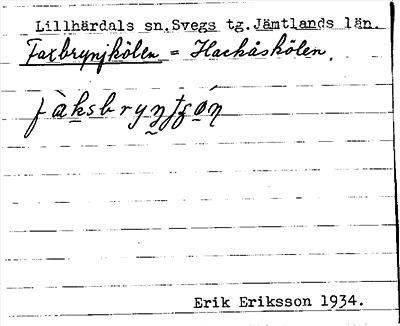 Lillhärdals sn. Svegs tg. Jämtlands län.
Faxbrynjkölen = Hackåskölen.
Erik Eriksson 1934.